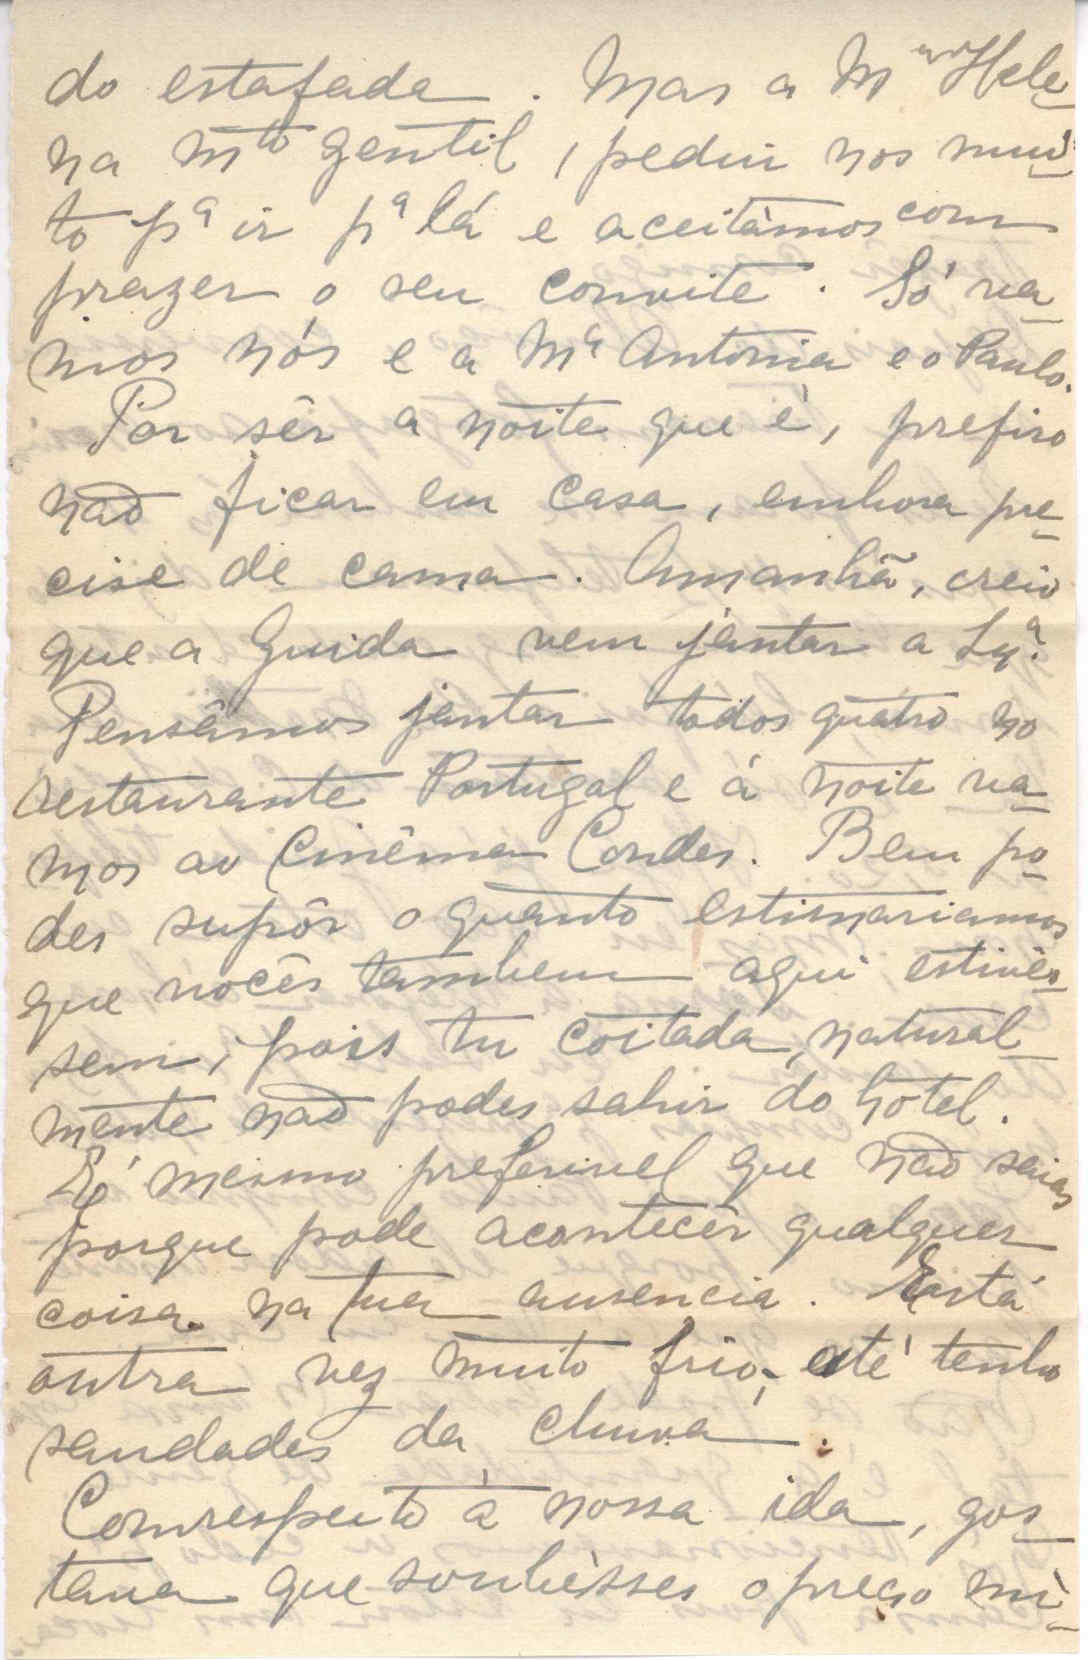 do estafada. Mas a Mᵃʳⁱ Hele-
na mto gentil, pediu nos mui-
to pª ir pª lá e aceitâmos com
prazer o seu convite. Só va-
mos nós e a Mª Antonia e o Paulo.
Por sêr a noite que é, prefiro
não ficar em casa, embora pre-
cise de cama. Amanhã, creio
que a Guida vem jantar a Lxª.
Pensâmos jantar todos quatro no
restaurante Portugal e á noite va-
mos ao Cinêma Condes. Bem po-
des supôr o quanto estimariamos
que vocês tambem aqui estivés-
sem, pois tu coitada, natural-
mente não podes sahir do hotel.
É mesmo preferivel que não saias
porque pode acontecêr qualquer
coisa na tua ausencia. Está
outra vez muito frio; até tenho
saudades da chuva.
Comrespeito à nossa ida, gos-
tava que soubésses o preço mi-